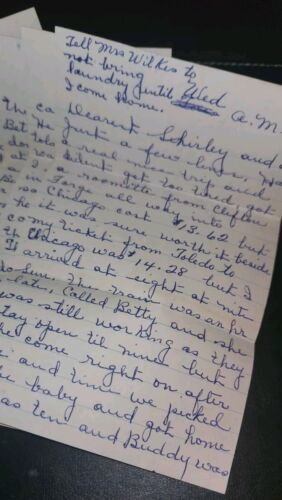 Tell Mrs Wilkes to
not bring
laundry until Wed
I come home.
A.M.
Dearest Shirley and
But the just a few lines.
a real nice trip and
get too tired, got
a roomette from Clifton
in Forge all way into
so Chicago cost $13.62 but
he it was sure worth it
come ticket from Toledo to
Chicago was $14.28 but I
arrived at eight at nite
The train was an hr
late, called Betty and she
was still working as they
stay open til nine but
come right on after
and time we picked
baby and got home
as ten and Buddy was